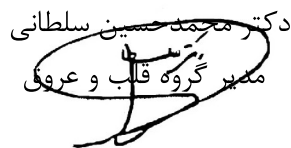 دکتر محمدحسین سلطانی
مدیر گروه قلب و عروق